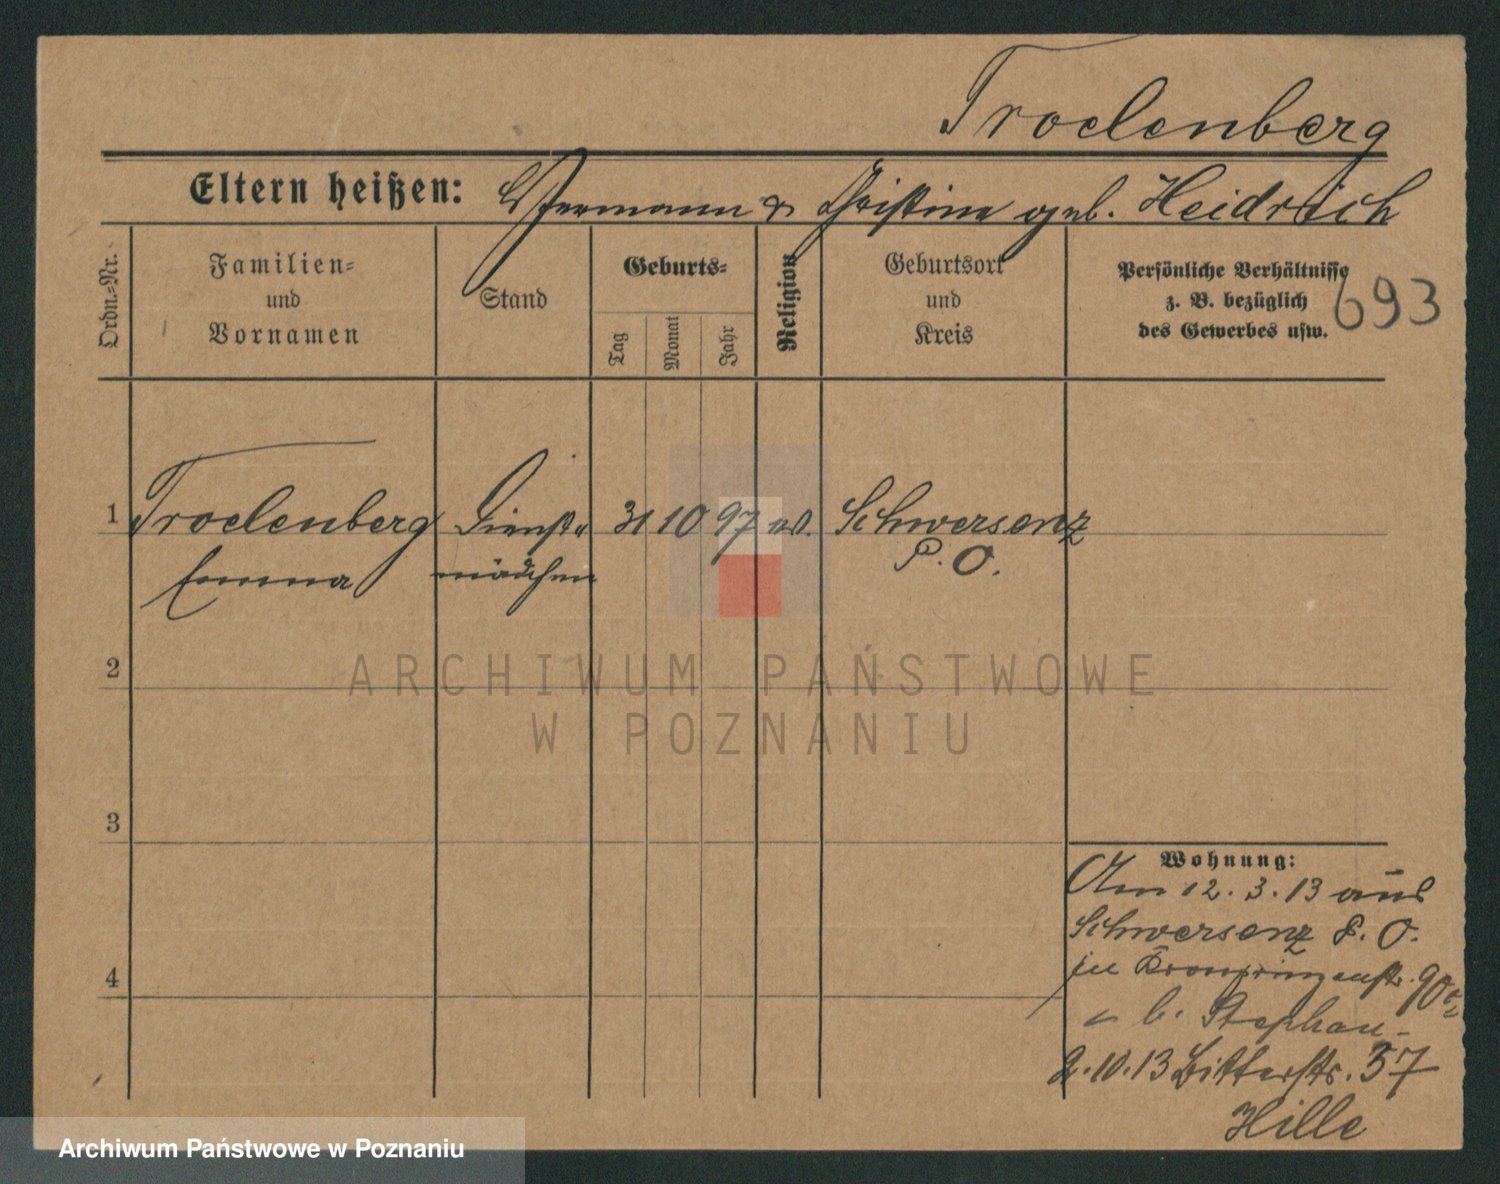 Troelenberg
Eltern heißen: Hermann & Christine geb. Heidrich
Ordn.-Nr.
Familien-
und
Vornamen
Stand
Geburts-
Tag
Monat
Jahr
Religion
Geburtsort
und
Kreis
Persönliche Verhältnisse
z. B. bezüglich
des Gewerbes usw.
693
1 Troelenberg Dienst- 31 10 97 ev. Schwersenz
Emma mädchen P. O.
2
3
4
Wohnung:
Am 12. 3. 13 aus
Schwersenz P. O.
in Kronprinzenstr. 90
b. Stephan
2.10.13 Ritterstr. 37
Hille
ARCHIWUM PAŃSTWOWE
W POZNANIU
Archiwum Państwowe w Poznaniu